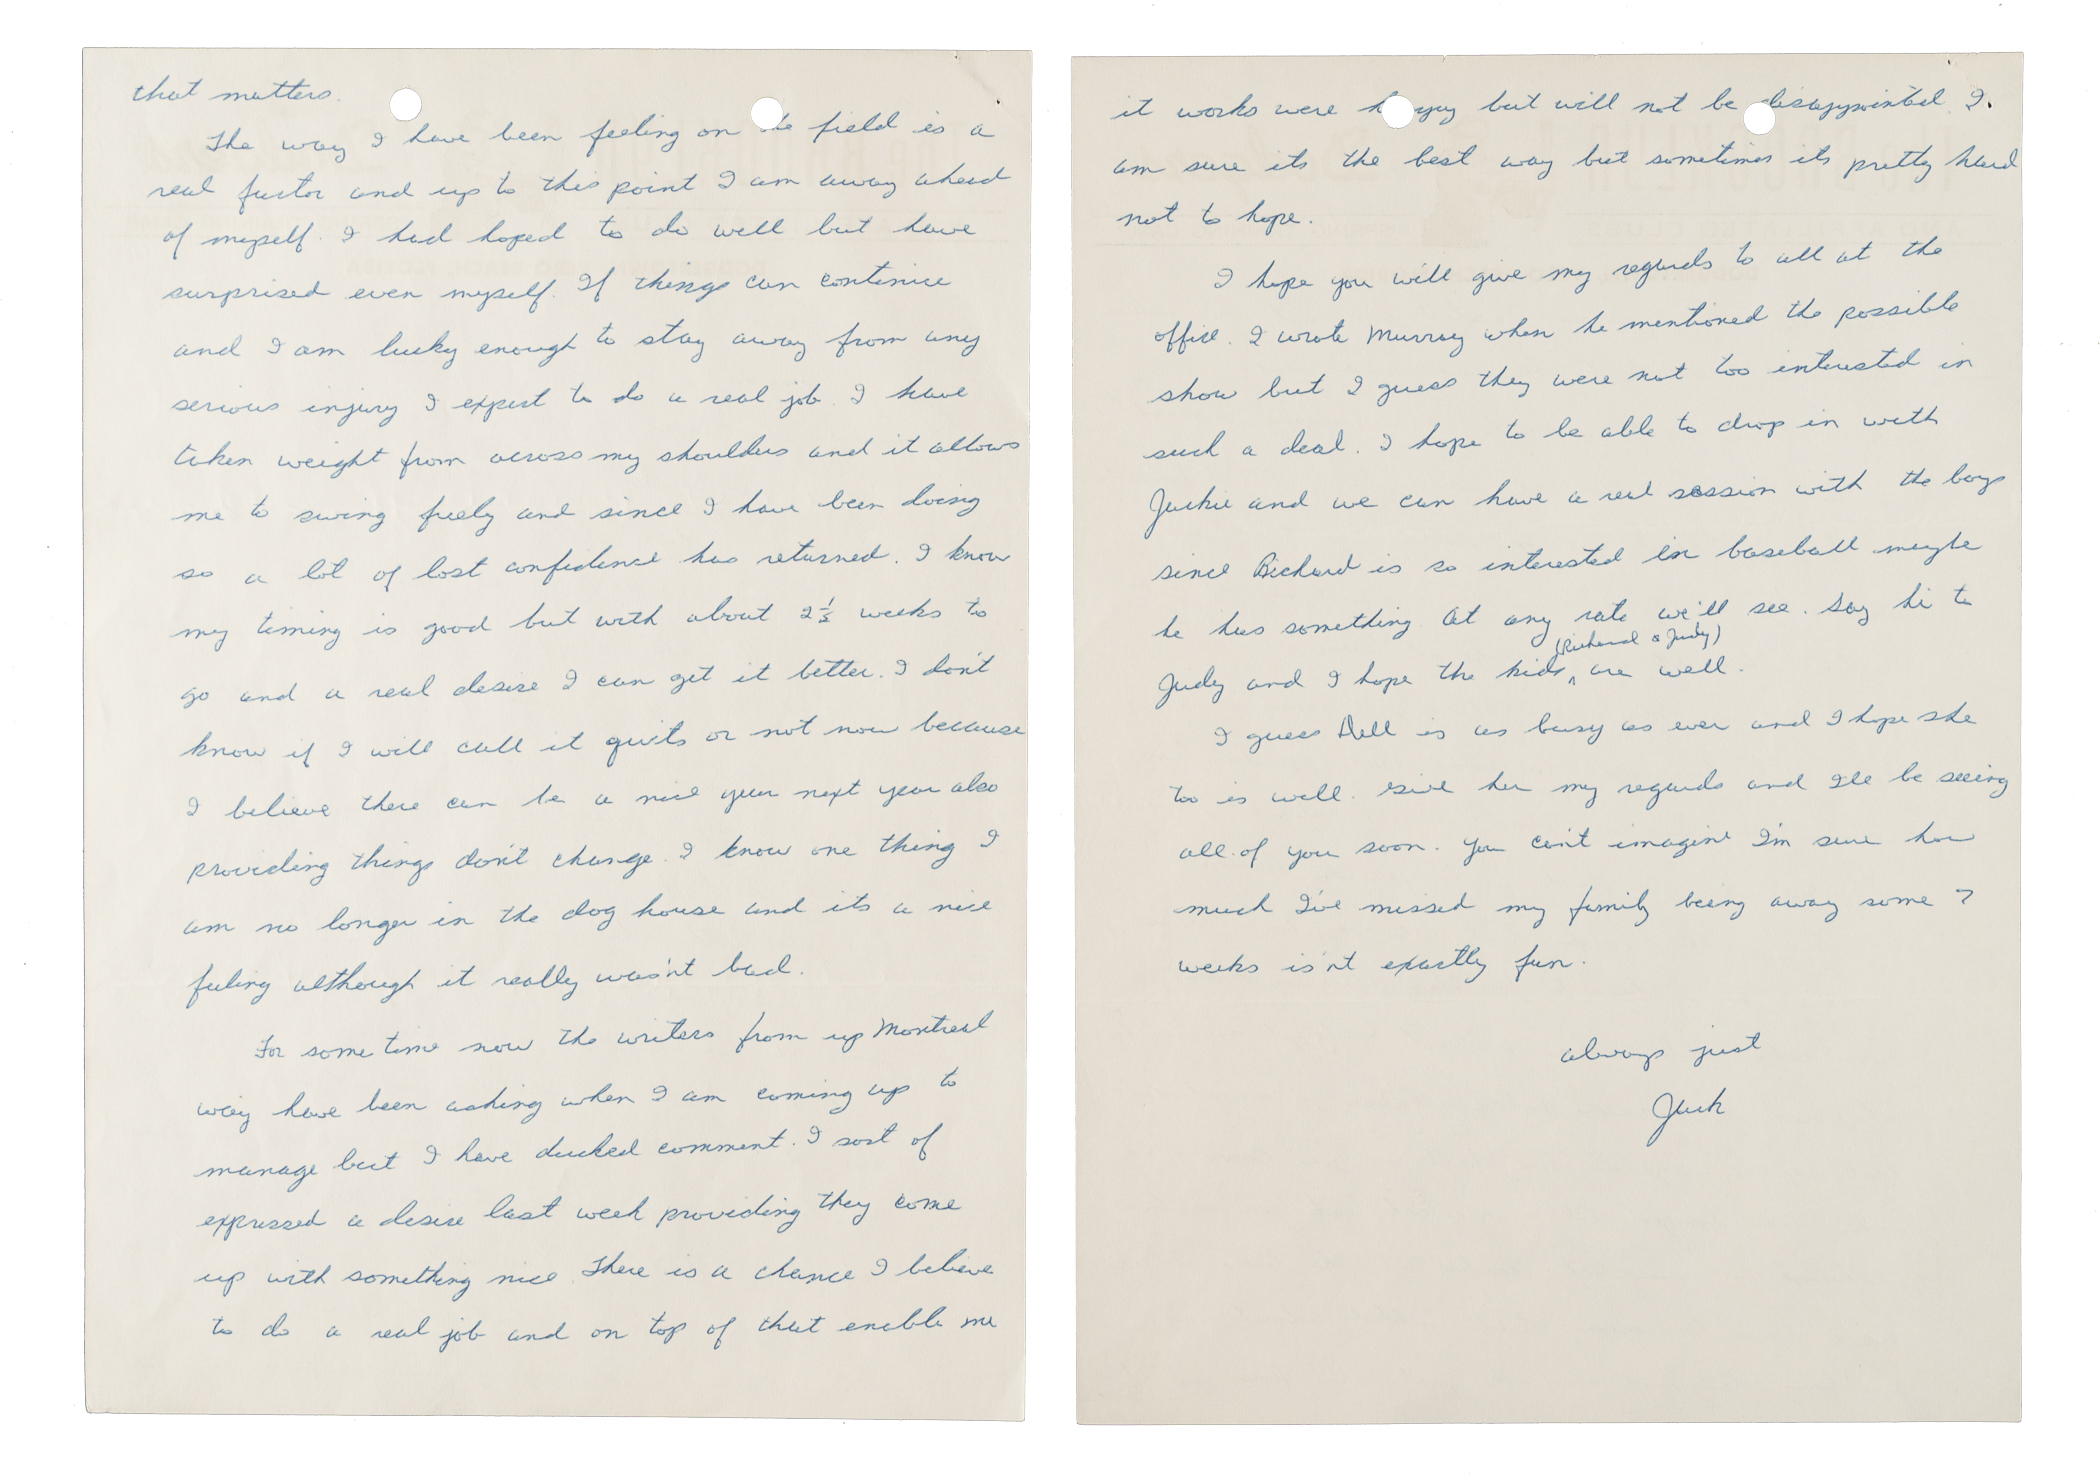 that matters.
The way I have been feeling on the field is a
real factor and up to this point I am away ahead
of myself. I had hoped to do well but have
surprised even myself. If things can continue
and I am lucky enough to stay away from any
serious injury I expect to do a real job. I have
taken weight from across my shoulders and it allows
me to swing freely and since I have been doing
so a lot of lost confidence has returned. I know
my timing is good but with about 2½ weeks to
go and a real desire I can get it better. I don't
know if I will call it quits or not now because
I believe there can be a nice year next year also
providing things don't change. I know one thing I
am no longer in the dog house and its a nice
feeling although it really wasn't bad.
For some time now the writers from up Montreal
way have been asking when I am coming up to
manage but I have ducked comment. I sort of
expressed a desire last week providing they come
up with something nice. There is a chance I believe
to do a real job and on top of that enable me
it works were happy but will not be disappointed I.
am sure its the best way but sometimes its pretty hard
not to hope.
I hope you will give my regards to all at the
office. I wrote Murray when he mentioned the possible
show but I guess they were not too interested in
such a deal. I hope to be able to drop in with
Jackie and we can have a real session with the boys
since Richard is so interested in baseball maybe
he has something. At any rate we'll see. Say hi to
(Richard & Judy)
Judy and I hope the kids ^ are well.
I guess Dell is as busy as ever and I hope she
too is well. Give her my regards and I'll be seeing
all of you soon. You can't imagine I'm sure how
much I've missed my family being away some 7
weeks is'nt exactly fun.
always just
Jack